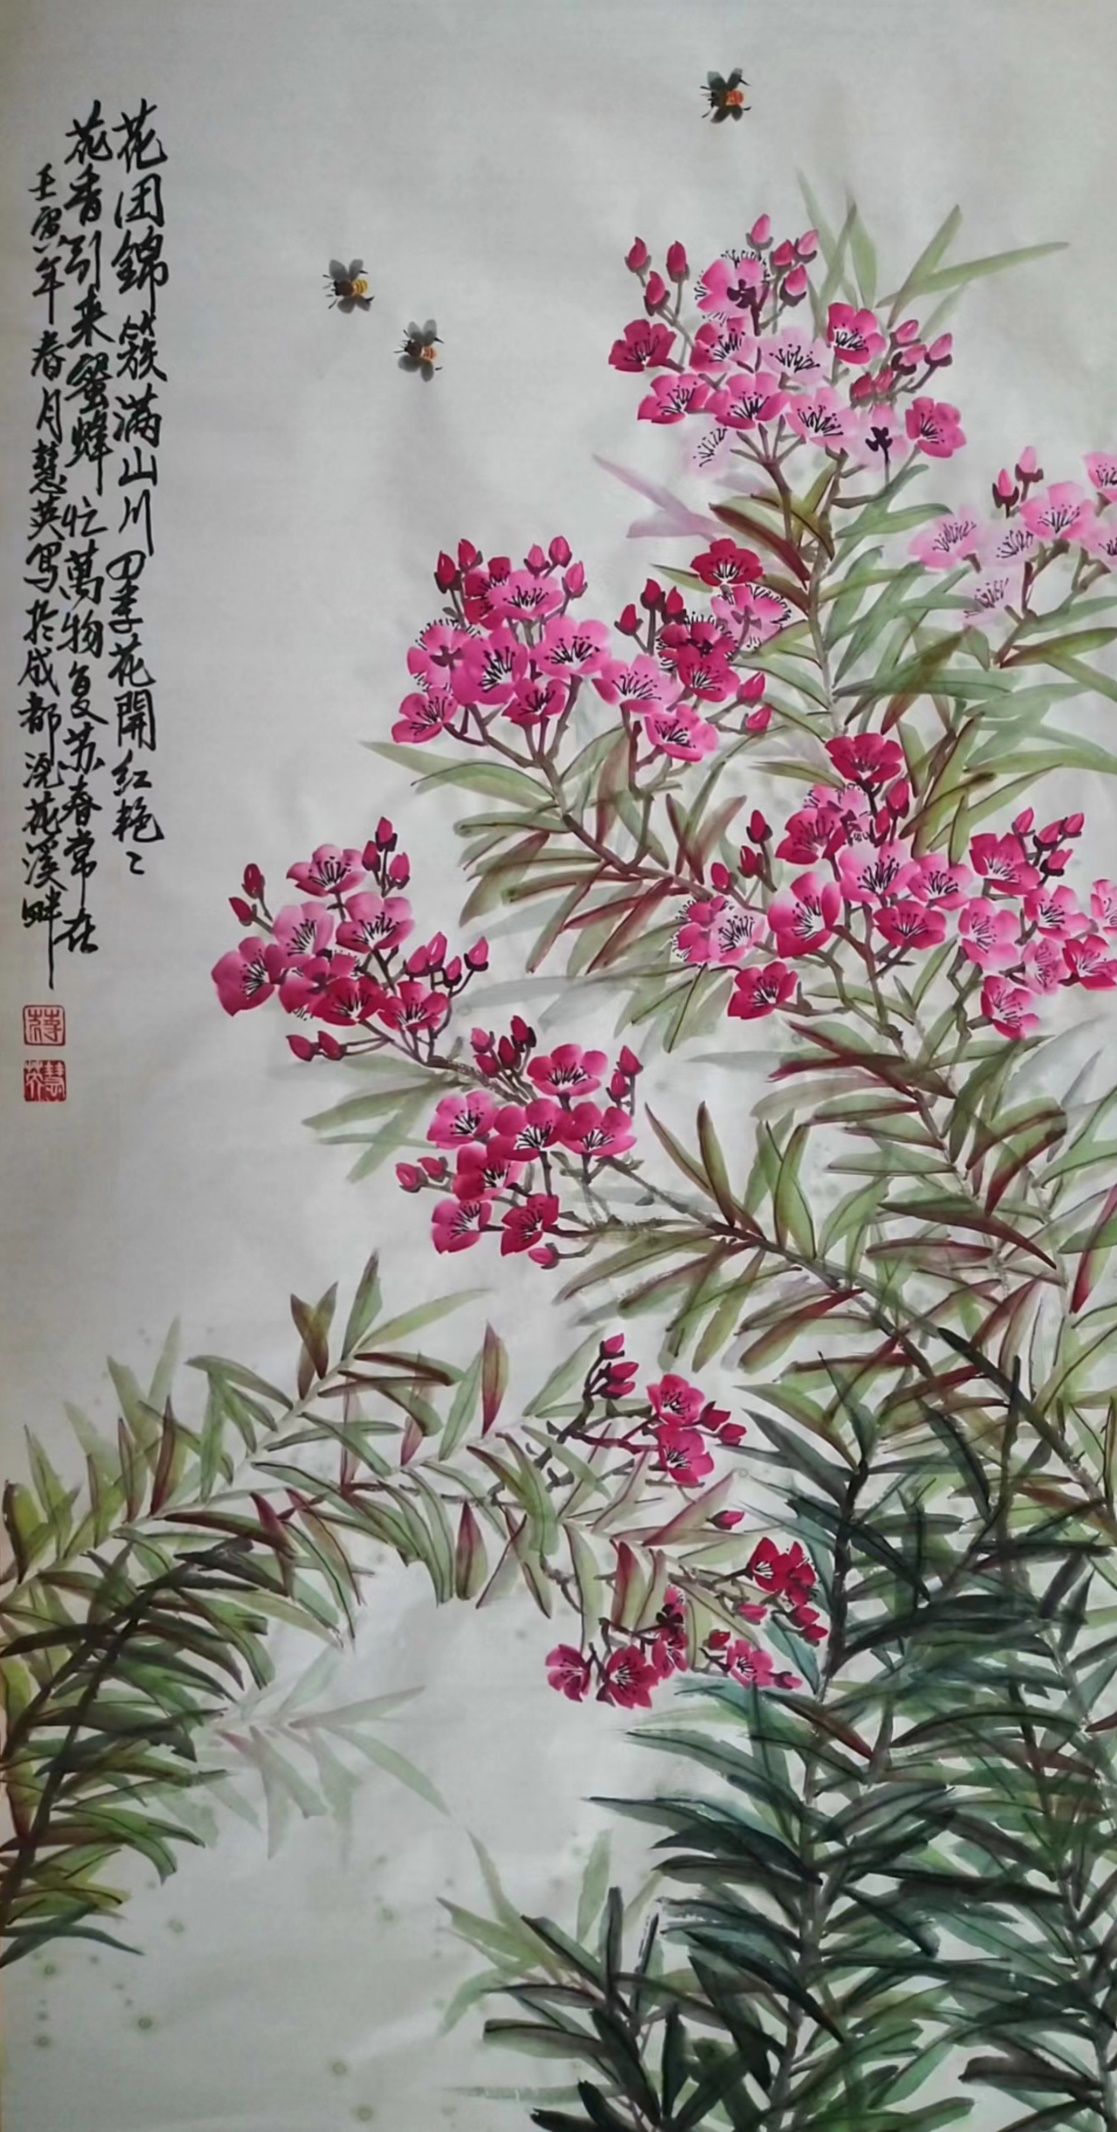 花团錦簇满山川四季花開红艳〻
花香引来蜜蜂忙萬物复苏春常在
壬寅年春月慧英写於成都浣花溪畔
慧英